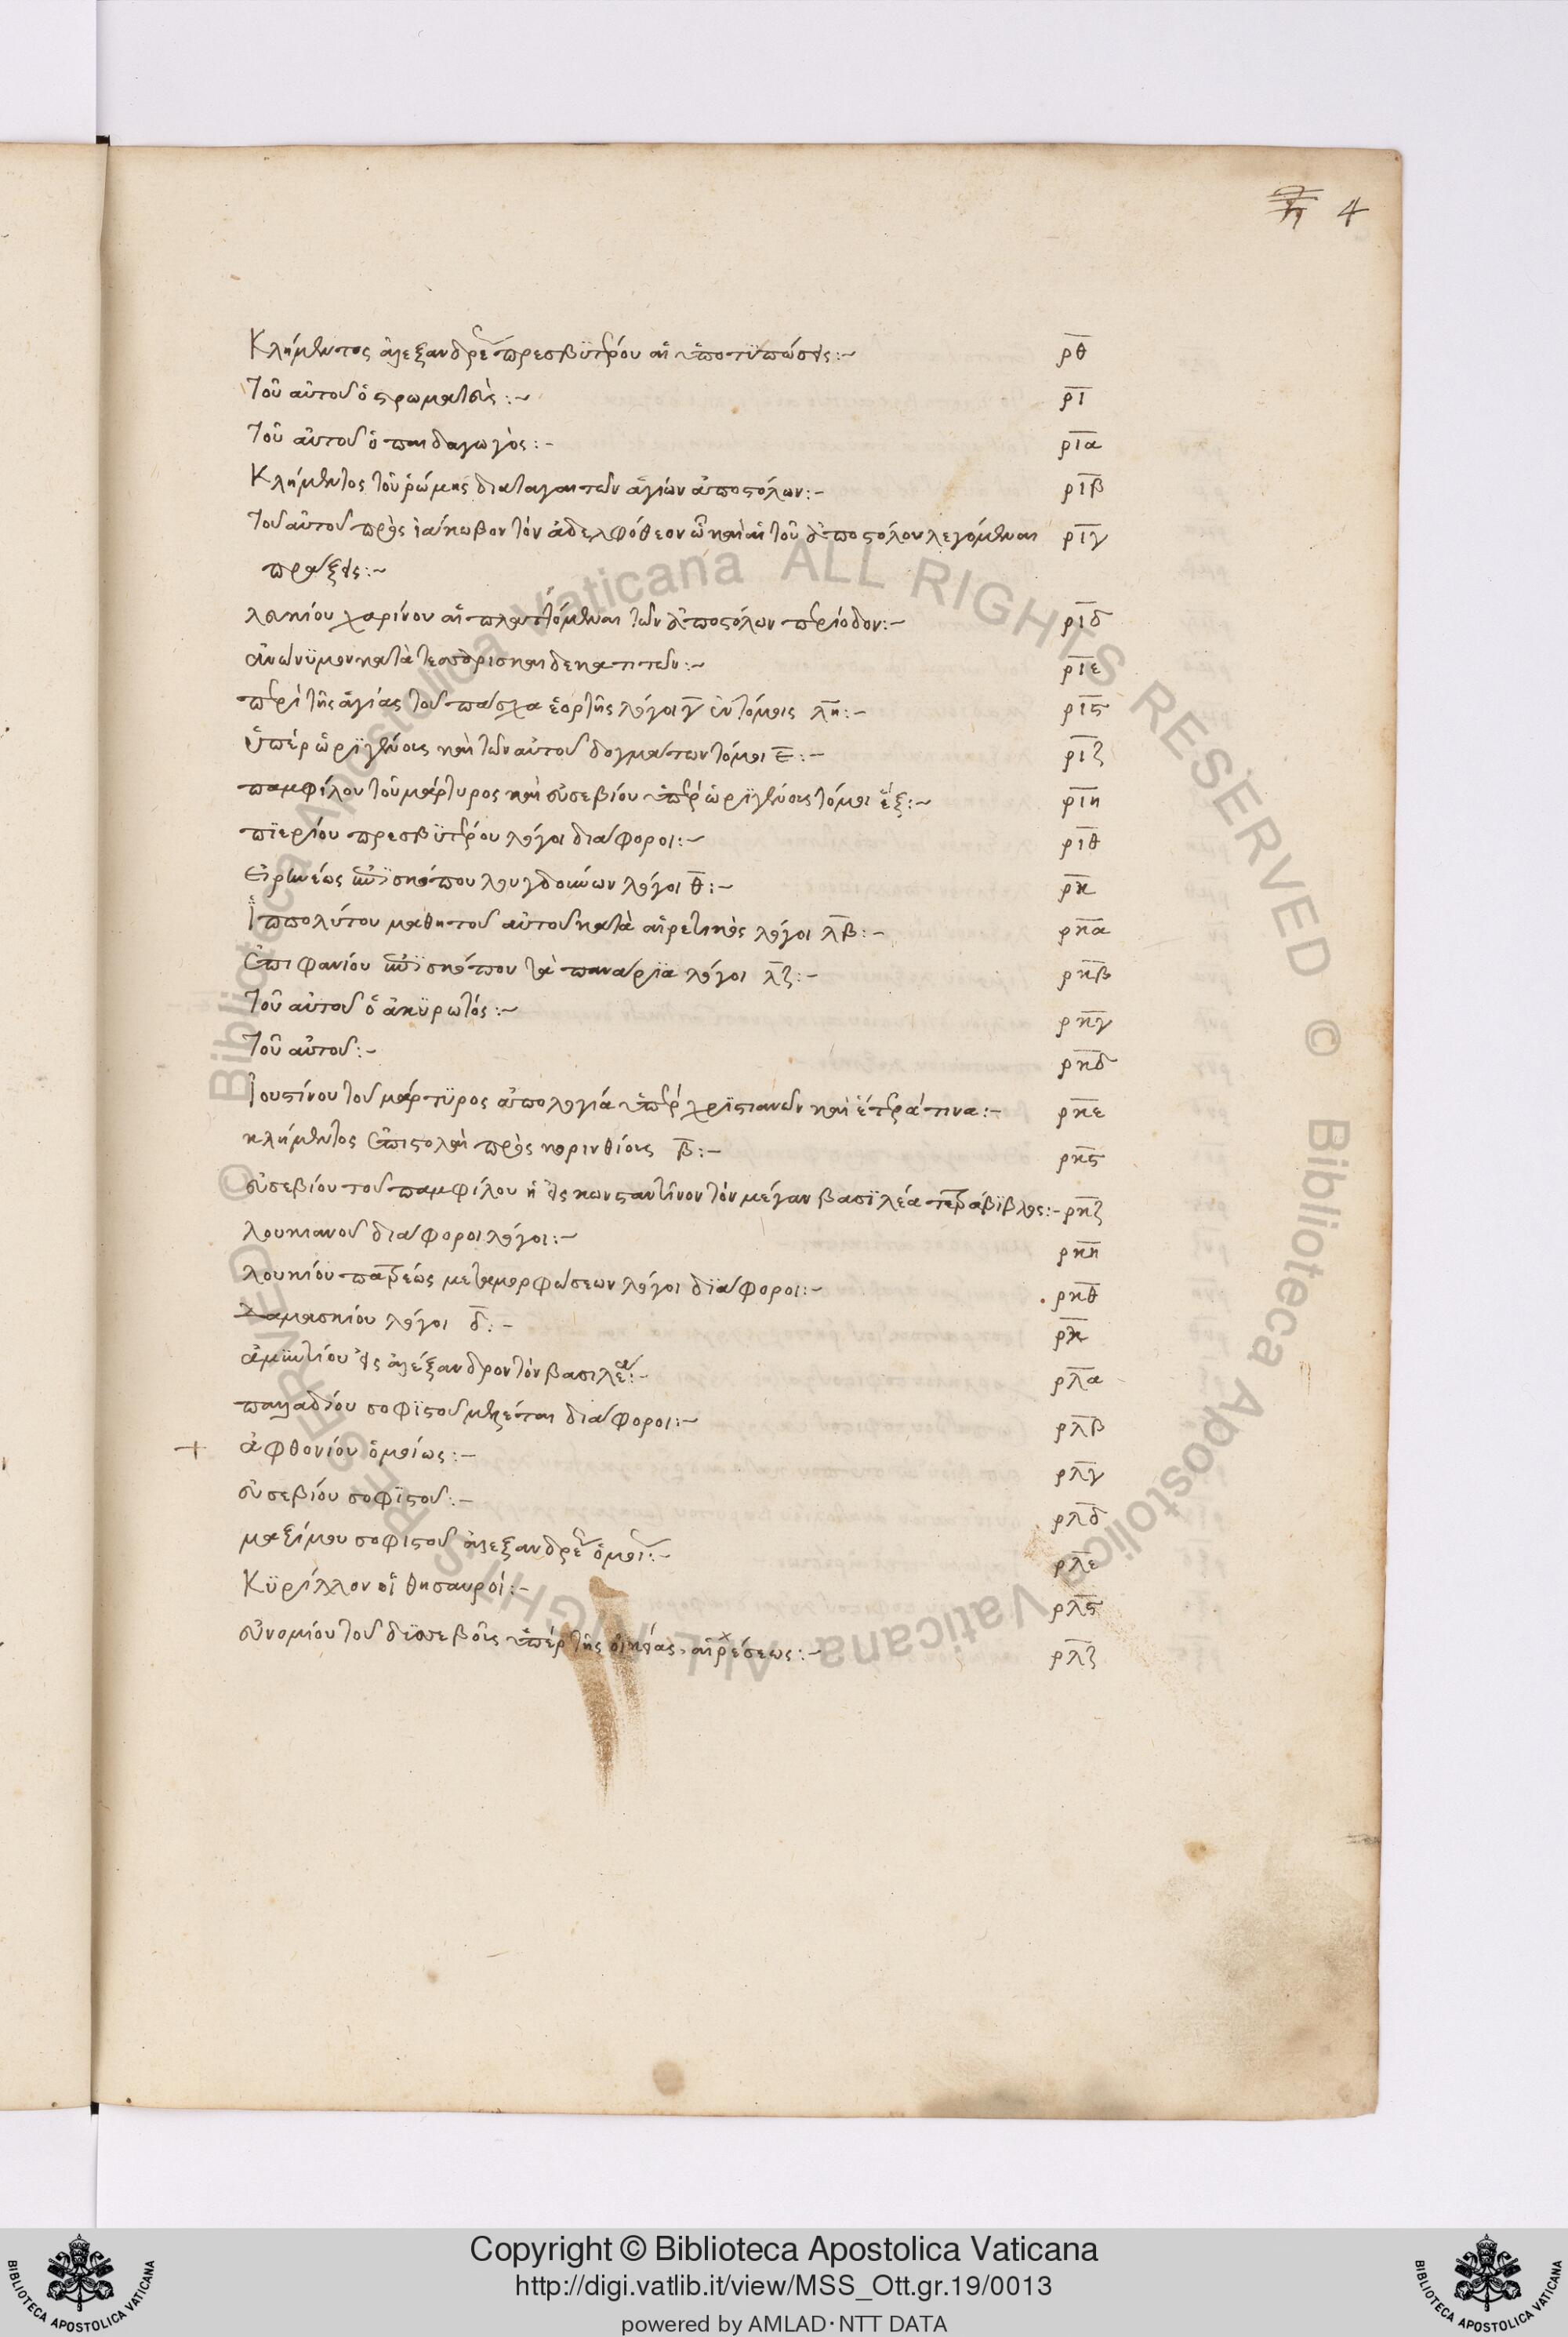 4
Κλήμεντος ἀλεξανδρέως πρεσβϋτέρου αἱ ὑποτϋπώσεις :~ ρθ
Τοῦ αὐτοῦ ὁ στρωματεὺς :~ ρι
Τοῦ αὐτοῦ ὁ παιδαγωγὸς :- ρια
Κλήμεντος τοῦ ῥώμης διαταγαι τῶν ἁγίων ἀποστόλων :- ριβ
Τοῦ αὐτοῦ πρὸς ἰάκωβον τὸν ἀδελφόθεον ὧ καὶ αἱ τοῦ ἀποστόλου λεγόμεναι ριγ
πράξεις :~
λευκίου χαρίνου αἱ πλαττόμεναι τῶν ἀποστόλων περίοδοι :- ριδ
ἀνωνϋμου κατὰ τεσσαρισκαιδεκατιτῶν :- ριε
περὶ τῆς ἁγίας τοῦ πάσχα ἑορτῆς λόγοι γ ἐν τόμοις λη :- ρις
ὑπὲρ ὠρϊγένους καὶ τῶν αὐτοῦ δογμάτων τόμοι ε :- ριζ
παμφίλου τοῦ μάρτυρος καὶ εὐσεβίου ὑπὲρ ὠρϊγένους τόμοι ἕξ :~ ριη
πϊερίου πρεσβϋτέρου λόγοι διάφοροι :~ ριθ
εἰρηνέως ἐπϊσκόπου λουγδούνων λόγοι θ :- ρκ
Ἱππολύτου μαθητοῦ αὐτοῦ κατὰ αἱρετικὸς λόγοι λβ :- ρκα
Ἐπιφανίου ἐπϊσκόπου τὰ πανάρϊα λόγοι λζ :- ρκβ
Τοῦ αὐτοῦ ὁ ἀκϋρωτός :~ ρκγ
Τοῦ αὐτοῦ :- ρκδ
Ἰουστίνου τοῦ μάρτϋρος ἀπολογία ὑπὲρ χρϊστιανῶν καὶ ἕτερά τινα :- ρκε
κλήμεντος ἐπιστολαὶ πρὸς κορινθίους β :- ρκς
εὐσεβίου τοῦ παμφίλου ἡ εἰς κωνσταντῖνον τὸν μέγαν βασϊλέα τετράβϊβλος :- ρκζ
λουκιανοῦ διάφοροι λόγοι :~ ρκη
λουκίου πατρέως μεταμορφώσεων λόγοι δϊάφοροι :- ρκθ
δαμασκίου λόγοι δ :- ρλ
ἀμϋντίου εἰς ἀλέξανδρον τὸν βασιλέα :- ρλα
παλλαδίου σοφϊστοῦ μελέται διάφοροι :~ ρλβ
+ ἀφθονίου ὁμοίως :- ρλγ
εὐσεβίου σοφϊστοῦ :- ρλδ
μαξίμου σοφιστοῦ ἀλεξανδρέως ὁμοίως :- ρλε
Κϋρίλλου οἱ θησαυροί :- ρλς
εὐνομίου τοῦ δϋσσεβοῦς ὑπὲρ τῆς οἰκείας αἱρέσεως :- ρλζ
© Biblioteca Apostolica Vaticana ALL RIGHTS RESERVED © Biblioteca Apostolica Vaticana ALL RIGHTS RESERVED
Copyright © Biblioteca Apostolica Vaticana
http://digi.vatlib.it/view/MSS_Ott.gr.19/0013
powered by AMLAD·NTT DATA
BIBLIOTECA APOSTOLICA VATICANA
BIBLIOTECA APOSTOLICA VATICANA